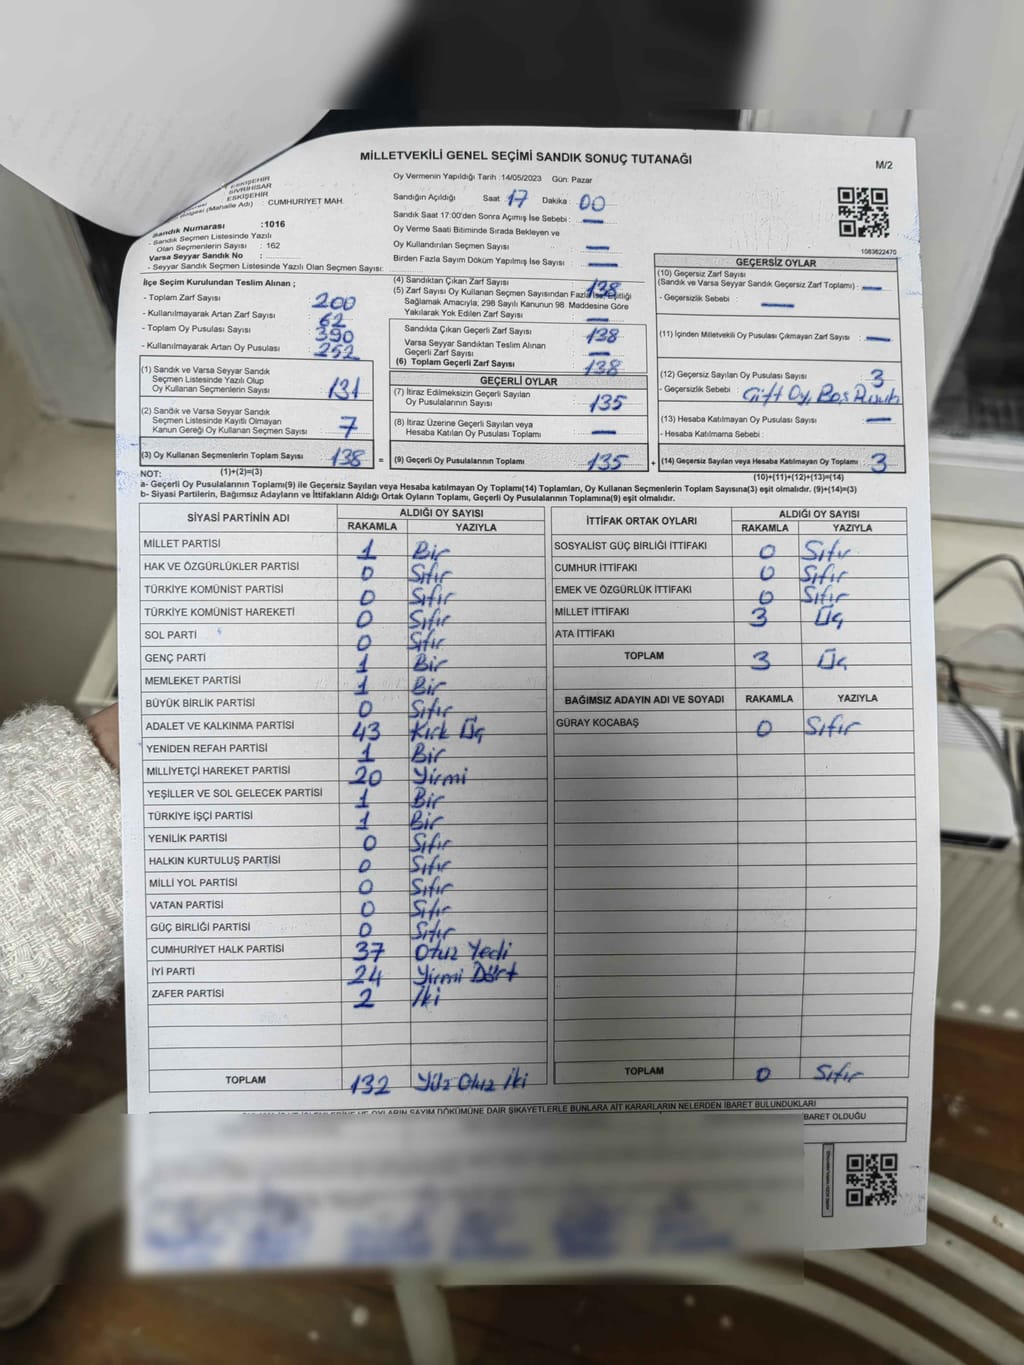 MİLLETVEKİLİ GENEL SEÇİMİ SANDIK SONUÇ TUTANAĞI
M/2
ESKİŞEHİR
SİVRİHİSAR
ESKİŞEHİR
(Mahalle Adı) : CUMHURİYET MAH.
Sandık Numarası :1016
- Sandık Seçmen Listesinde Yazılı
Olan Seçmenlerin Sayısı : 162
Varsa Seyyar Sandık No :
- Seyyar Sandık Seçmen Listesinde Yazılı Olan Seçmen Sayısı:
Oy Vermenin Yapıldığı Tarih :14/05/2023 Gün: Pazar
Sandığın Açıldığı Saat 17 Dakika : 00
Sandık Saat 17:00'den Sonra Açımış İse Sebebi : —
Oy Verme Saati Bitiminde Sırada Bekleyen ve
Oy Kullandırılan Seçmen Sayısı : —
Birden Fazla Sayım Döküm Yapılmış İse Sayısı : —
1083622470
İlçe Seçim Kurulundan Teslim Alınan ;
- Toplam Zarf Sayısı : 200
- Kullanılmayarak Artan Zarf Sayısı : 62
- Toplam Oy Pusulası Sayısı : 390
- Kullanılmayarak Artan Oy Pusulası : 252
(1) Sandık ve Varsa Seyyar Sandık
Seçmen Listesinde Yazılı Olup
Oy Kullanan Seçmenlerin Sayısı : 131
(2) Sandık ve Varsa Seyyar Sandık
Seçmen Listesinde Kayıtlı Olmayan
Kanun Gereği Oy Kullanan Seçmen Sayısı : 7
(3) Oy Kullanan Seçmenlerin Toplam Sayısı : 138 =
(1)+(2)=(3)
(4) Sandıktan Çıkan Zarf Sayısı : 138
(5) Zarf Sayısı Oy Kullanan Seçmen Sayısından Fazla İse, Eşitliği
Sağlamak Amacıyla, 298 Sayılı Kanunun 98. Maddesine Göre
Yakılarak Yok Edilen Zarf Sayısı : —
Sandıkta Çıkan Geçerli Zarf Sayısı : 138
Varsa Seyyar Sandıktan Teslim Alınan
Geçerli Zarf Sayısı : —
(6) Toplam Geçerli Zarf Sayısı : 138
GEÇERLİ OYLAR
(7) İtiraz Edilmeksizin Geçerli Sayılan
Oy Pusulalarının Sayısı : 135
(8) İtiraz Üzerine Geçerli Sayılan veya
Hesaba Katılan Oy Pusulası Toplamı : —
(9) Geçerli Oy Pusulalarının Toplamı : 135 +
GEÇERSİZ OYLAR
(10) Geçersiz Zarf Sayısı
(Sandık ve Varsa Seyyar Sandık Geçersiz Zarf Toplamı) : —
- Geçersizlik Sebebi : —
(11) İçinden Milletvekili Oy Pusulası Çıkmayan Zarf Sayısı : —
(12) Geçersiz Sayılan Oy Pusulası Sayısı : 3
- Geçersizlik Sebebi : Çift Oy, Boş
(13) Hesaba Katılmayan Oy Pusulası Sayısı : —
- Hesaba Katılmama Sebebi :
(14) Geçersiz Sayılan veya Hesaba Katılmayan Oy Toplamı : 3
(10)+(11)+(12)+(13)=(14)
NOT:
a- Geçerli Oy Pusulalarının Toplamı(9) ile Geçersiz Sayılan veya Hesaba Katılmayan Oy Toplamı(14) Toplamları, Oy Kullanan Seçmenlerin Toplam Sayısına(3) eşit olmalıdır. (9)+(14)=(3)
b- Siyasi Partilerin, Bağımsız Adayların ve İttifakların Aldığı Ortak Oyların Toplamı, Geçerli Oy Pusulalarının Toplamına(9) eşit olmalıdır.
SİYASİ PARTİNİN ADI ALDIĞI OY SAYISI
RAKAMLA YAZIYLA
MİLLET PARTİSİ 1 Bir
HAK VE ÖZGÜRLÜKLER PARTİSİ 0 Sıfır
TÜRKİYE KOMÜNİST PARTİSİ 0 Sıfır
TÜRKİYE KOMÜNİST HAREKETİ 0 Sıfır
SOL PARTİ 0 Sıfır
GENÇ PARTİ 1 Bir
MEMLEKET PARTİSİ 1 Bir
BÜYÜK BİRLİK PARTİSİ 0 Sıfır
ADALET VE KALKINMA PARTİSİ 43 Kırk Üç
YENİDEN REFAH PARTİSİ 1 Bir
MİLLİYETÇİ HAREKET PARTİSİ 20 Yirmi
YEŞİLLER VE SOL GELECEK PARTİSİ 1 Bir
TÜRKİYE İŞÇİ PARTİSİ 1 Bir
YENİLİK PARTİSİ 0 Sıfır
HALKIN KURTULUŞ PARTİSİ 0 Sıfır
MİLLİ YOL PARTİSİ 0 Sıfır
VATAN PARTİSİ 0 Sıfır
GÜÇ BİRLİĞİ PARTİSİ 0 Sıfır
CUMHURİYET HALK PARTİSİ 37 Otuz Yedi
İYİ PARTİ 24 Yirmi Dört
ZAFER PARTİSİ 2 İki
TOPLAM 132 Yüz Otuz İki
İTTİFAK ORTAK OYLARI ALDIĞI OY SAYISI
RAKAMLA YAZIYLA
SOSYALİST GÜÇ BİRLİĞİ İTTİFAKI 0 Sıfır
CUMHUR İTTİFAKI 0 Sıfır
EMEK VE ÖZGÜRLÜK İTTİFAKI 0 Sıfır
MİLLET İTTİFAKI 3 Üç
ATA İTTİFAKI
TOPLAM 3 Üç
BAĞIMSIZ ADAYIN ADI VE SOYADI RAKAMLA YAZIYLA
GÜRAY KOCABAŞ 0 Sıfır
TOPLAM 0 Sıfır
OYLARIN SAYIM DÖKÜMÜNE DAİR ŞİKAYETLERLE BUNLARA AİT KARARLARIN NELERDEN İBARET BULUNDUKLARI
İBARET OLDUĞU